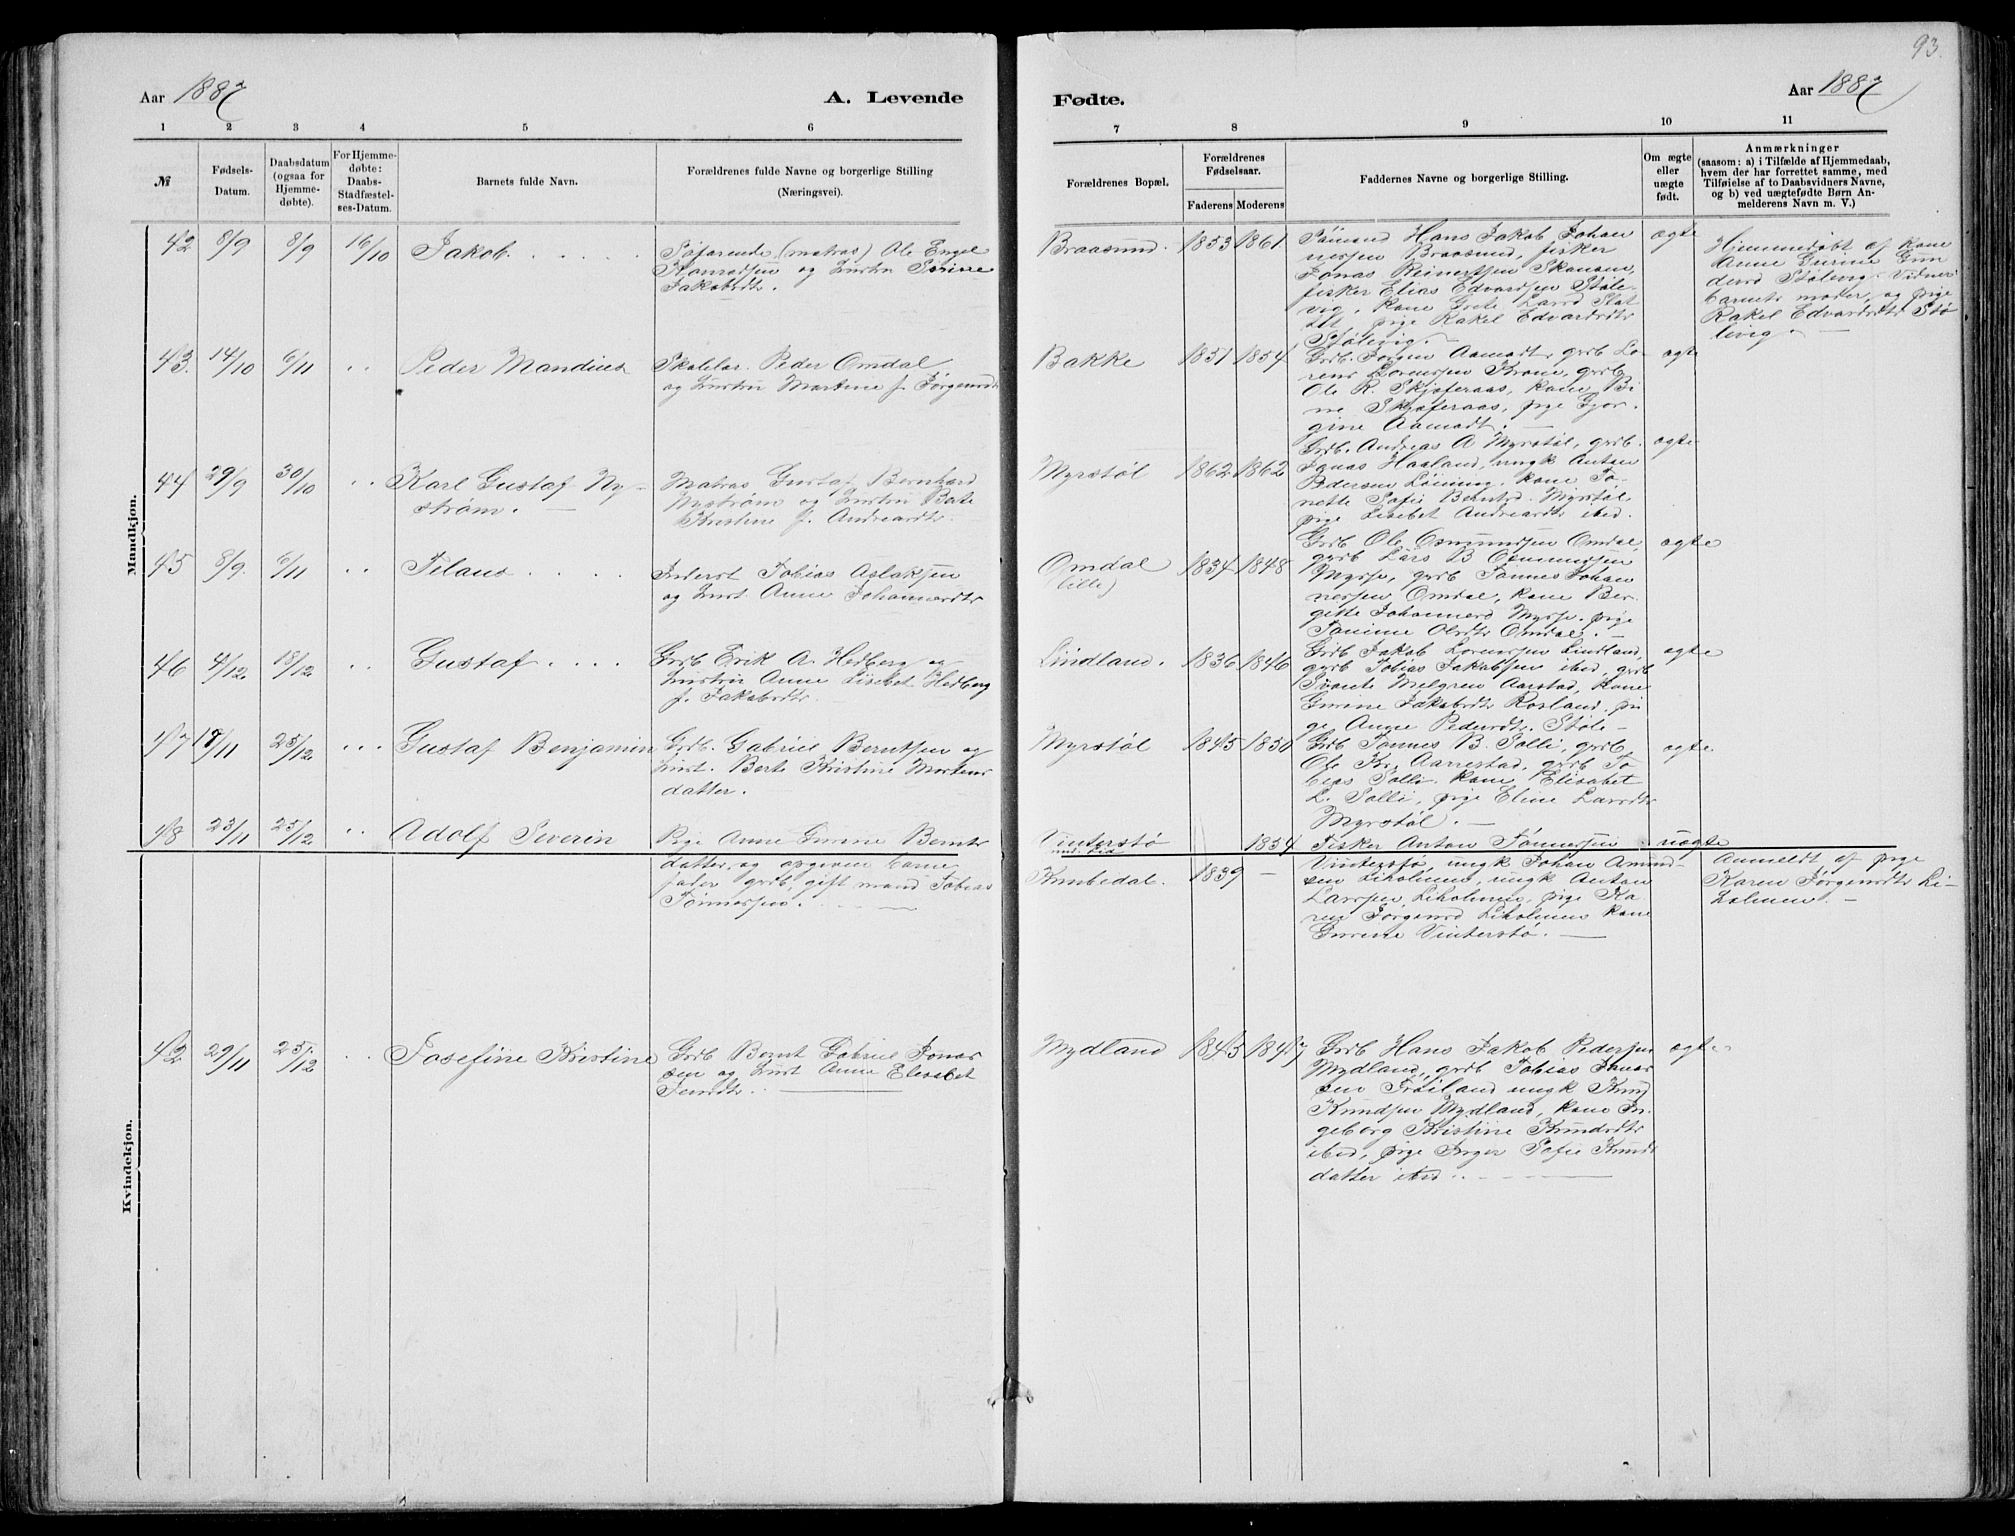 93.
Aar 1887
A. Levende
Fødte.
Aar 1887
1 2 3 4 5 6 7 8 9 10 11
№
Fødsels-
Datum.
Daabsdatum
(ogsaa for
Hjemme-
døbte).
For Hjemme-
døbte:
Daabs-
Stadfæstel-
ses-Datum.
Barnets fulde Navn.
Forældrenes fulde Navne og borgerlige Stilling
(Næringsvei).
Forældrenes Bopæl.
Forældrenes
Fødselsaar.
Faderens Moderens
Faddernes Navne og borgerlige Stilling.
Om ægte
eller
uægte
født.
Anmærkninger
(saasom: a) i Tilfælde af Hjemmedaab,
hvem der har forrettet samme, med
Tilføielse af to Daabsvidners Navne,
og b) ved uægtefødte Børn An-
melderens Navn m. V.)
Mandkjøn.
42 8/9 8/9 16/10 Jakob.
Søfarende (matros) Ole Engel
Konradsen og hustru Sørine
Jakobsdtr.
Braasund. 1853 1861
Sømand Hans Jakob Johan
nessen Braasund, fisker
Jonas Reinertsen Skansen,
fisker Elias Edvardsen Støle-
vig, kone Grete Larsd Slot
let pige Rakel Edvardsdtr
Stølevig. —
ægte
Hjemmedøbt af kone
Anne Gurine Gun
dersd Stølevig. Vidner
barnets moder, og pige
Rakel Edvardsdtr Stø
levig. —
43. 14/10 6/11 " Peder Mandius
Skolelær. Peder Omdal
og hustru Martine f. Jørgensdtr
Bakke 1851 1854
Grdb. Jørgen Aamodt, grdb Lo-
rens Lorensen Krone, grdb
Ole R. Skjøferaas, kone Bi
ne Skjøferaas, pige Gjor-
gine Aamodt. —
ægte
44 29/9 30/10 " Karl Gustaf Ny-
strøm. —
Matros Gustaf Bernhard
Nystrøm og hustru Berte
Kristine f. Andreasdtr.
Myrstøl 1862 1862
Grdb. Andreas A Myrstøl, grdb.
Jonas Haaland, ungk Anton
Pedersen Løining, kone To-
nette Sofie Berntsd. Myrstøl
pige Lisebet Andreasdtr ibid.
ægte
45 8/9. 6/11 " Tilaus
Inderst Tobias Aslaksen
og hust. Anne Johannesdtr
Omdal
(lille) 1834 1848
Grdb Ole Osmundsen Omdal,
grdb Lars B Osmundsen
Mysse, grdb Tønnes Johan
nessen Omdal, kone Ber-
gitte Johannesd Mysse. pige
Tonime Olsdtr Omdal. —
ægte
46 4/12 18/12 " Gustaf
Grdb Erik A. Hedberg og
hustru Anne Lisebet Hedberg
f. Jakobsdtr.
Lindland. 1836 1846
Grdb Jakob Lorensen Lindland,
grdb Tobias Jakobsen ibid, grdb
Svante Melgren Aarstad, kone
Gurine Jakobsdtr Rosland. pi
ge Anne Pedersdtr. Støle —
ægte
47 17/11 25/12 " Gustaf Benjamin
Grdb. Gabriel Berntsen og
hust. Berte Kristine Mortens
datter.
Myrstøl 1845 1850
Grdb Tønnes B. Solli, grdb
Ole Kr. Aarrestad, grdb To
bias Solli. kone Elisabet
L. Solli, pige Eline Larsdtr
Myrstøl. —
ægte
48 23/11 25/12 " Adolf Severin
Pige Anne Gurine Bernts
datter og opgiven barne
fader grdb, gift mand Tobias
Tønnesen.
Vinterstø 1854
Knubedal. 1839 —
Fisker Anton Tønnesen
Vinterstø, ungk Johan Amund
sen Liholmen, ungk Anton
Larssen Liholmen, pige Ka
ren Jørgensd Liholmen kone
Gurine Vinterstø. —
uægte
Anmeldt af pige
Karen Jørgensdtr Li-
holmen. —
Kvindekjøn.
42 29/11 25/12 " Josefine Kristine
Grdb Bernt Gabriel Jonas
sen og hust Anne Elisabet
Jensdtr.
Mydland 1845 1847
Grdb Hans Jakob Pedersen
Mydland, grdb Tobias Jonas
sen Frøiland ungk Knud
Knudsen Mydland, kone In-
geborg Kristine Knudsdtr
ibid, pige Inger Sofie Knuds
datter ibid.
ægte